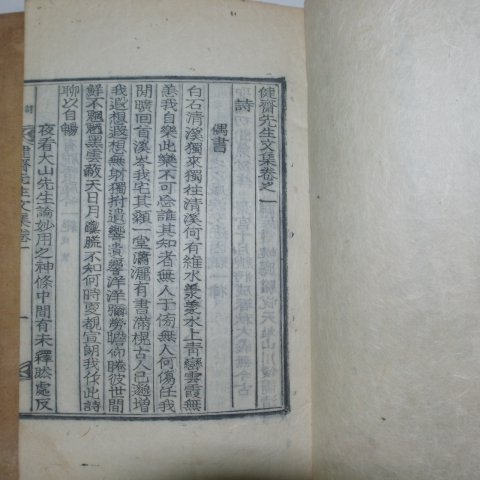 健齋先生文集卷之一
詩
偶書
白石清溪獨來獨往清溪何有維水梁梁水上靑巒雲霞無
恙我自樂此樂不可忘誰其知者無人于傍無人何傷任我
閒曠回首溪岑我宅其顚一堂瀟灑有書滿架古人已逝增
我遐想遐想無躬獨拊遺響遺響洋洋彌勞瞻仰睠彼世間
鮮不魍魎黑雲蔽天日月朦朧不知何時更覩宣朗我作此詩
聊以自暢
夜看大山先生論妙用之神條中間有未釋然處反
健齋先生文集卷一
詩